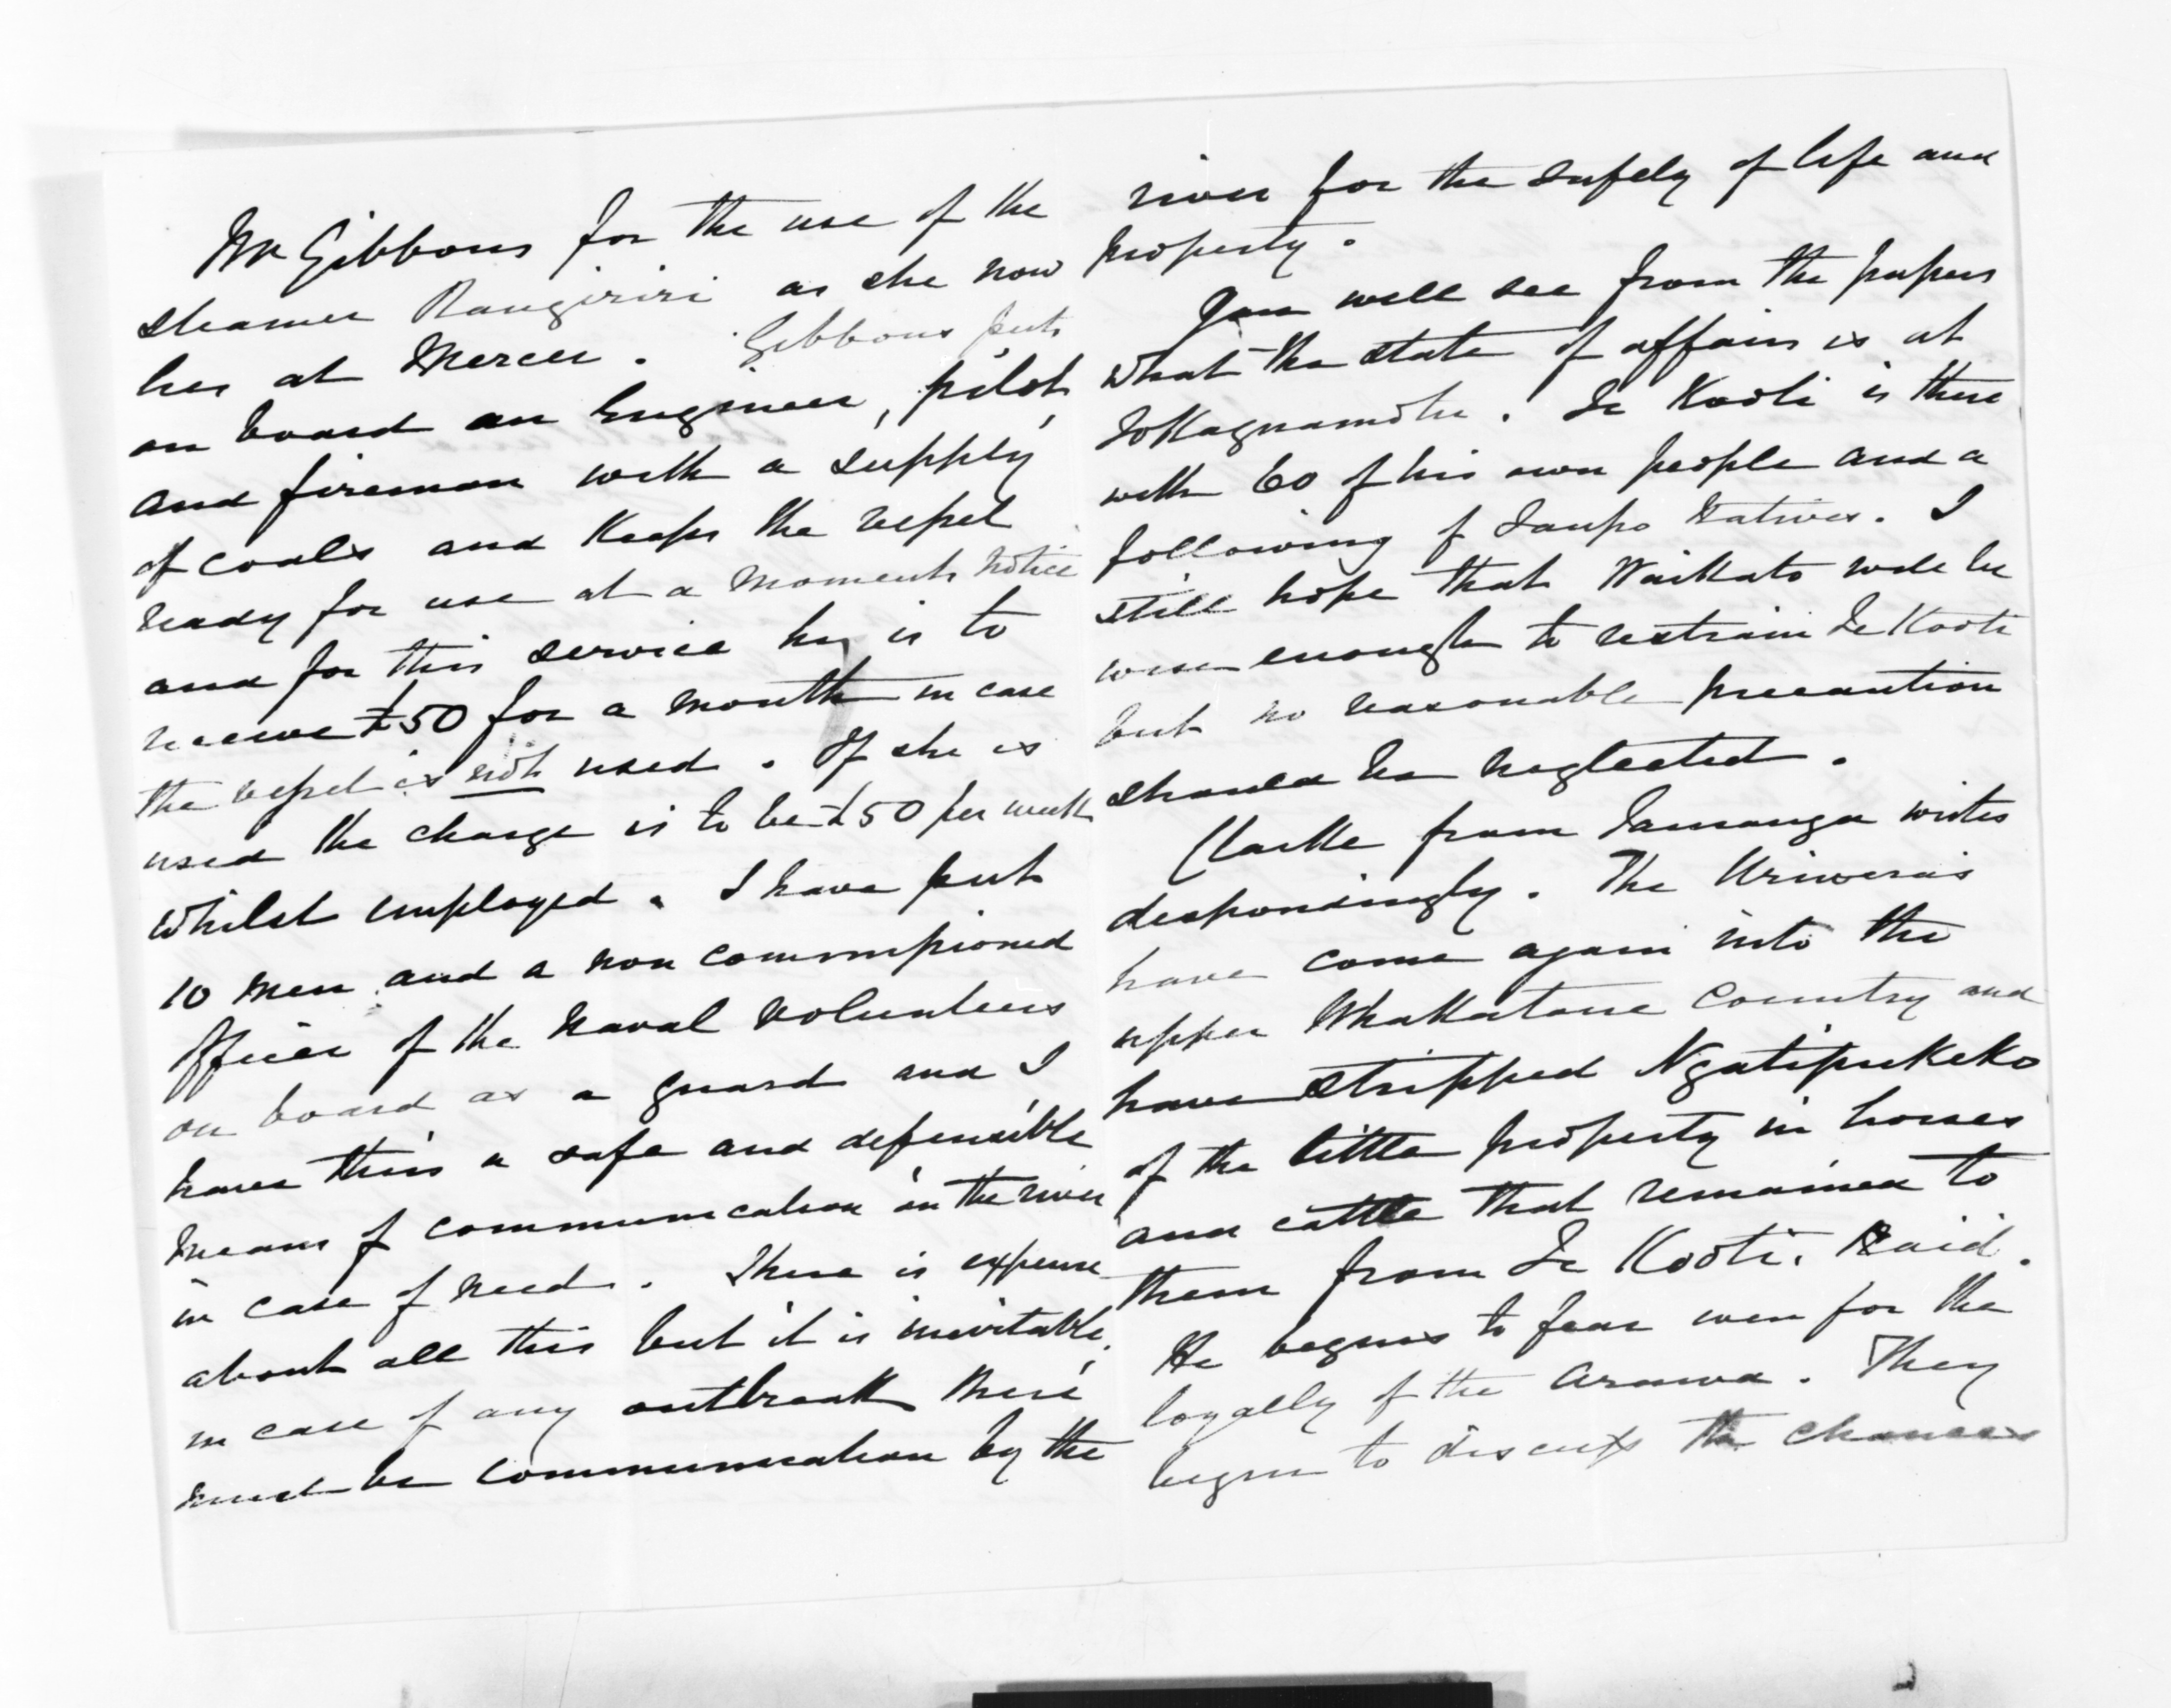 Mr Gibbons for the use of the
steamer Rangiriri as she now
lies at Mercer. Gibbons puts
on board an Engineer, pilot,
and fireman with a supply
of coals and keeps the vessel
ready for use at a moments notice
and for this service he is to
receive £50 for a month in case
the vessel is not used. If she is
used the charge is to be £50 per week
whilst employed. I have put
10 men and a non commissioned
Officer of the Naval Volunteers
on board as a guard and I
have thus a safe and defensible
means of communication in the river
in case of need. There is expense
about all this but it is inevitable.
in case of any outbreak there
must be communication by the
river for the safety of life and
property.
You will see from the papers
what the state of affairs is at
Tokangamutu. Te Kooti is there
with 60 of his own people and a
following of Taupo Natives. I
still hope that Waikato will be
wise enough to restrain Te Kooti
but no reasonable precaution
should be neglected.
Clarke from Tauranga writes
despondingly. The Uriwera's
have come again into the
upper Whakatane Country and
have stripped Ngatipukeko
of the little property in horses
and cattle that remained to
them from Te Kooti's Raid.
He begins to fear even for the
loyalty of the Arawa. They
begin to discuss the chances